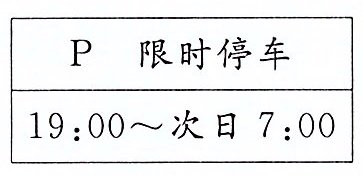 P 限时停车
19:00～次日 7:00